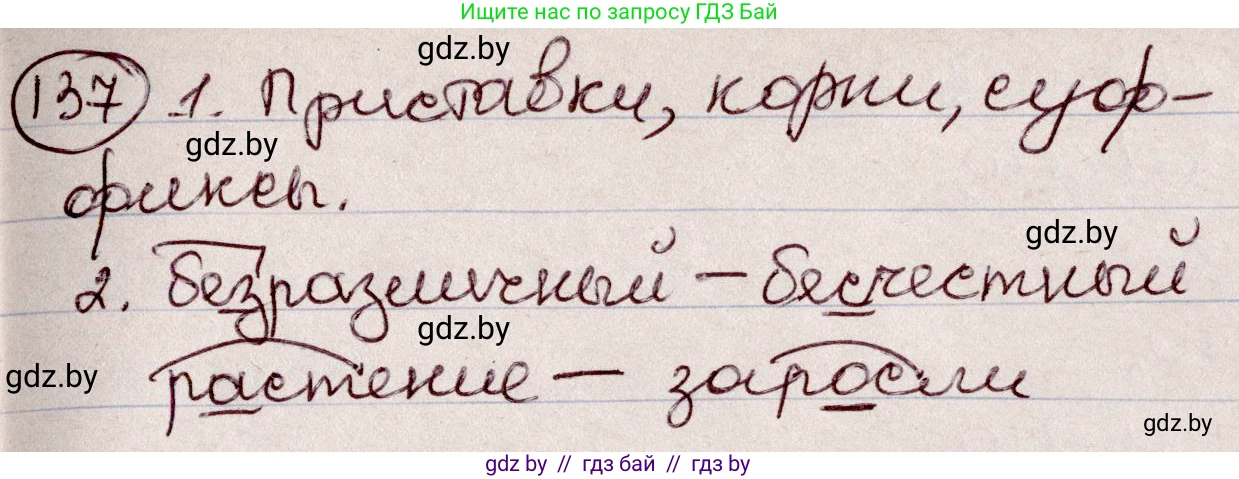 Ищите нас по запросу ГДЗ Бай
gdz.by
137 1. Приставки, корни, суф-
gdz.by
фиксы.
gdz.by
2. безразличный – бесчестный
gdz.by
gdz.by
растение – заросли
gdz.by
gdz by // гдз бай // гдз by